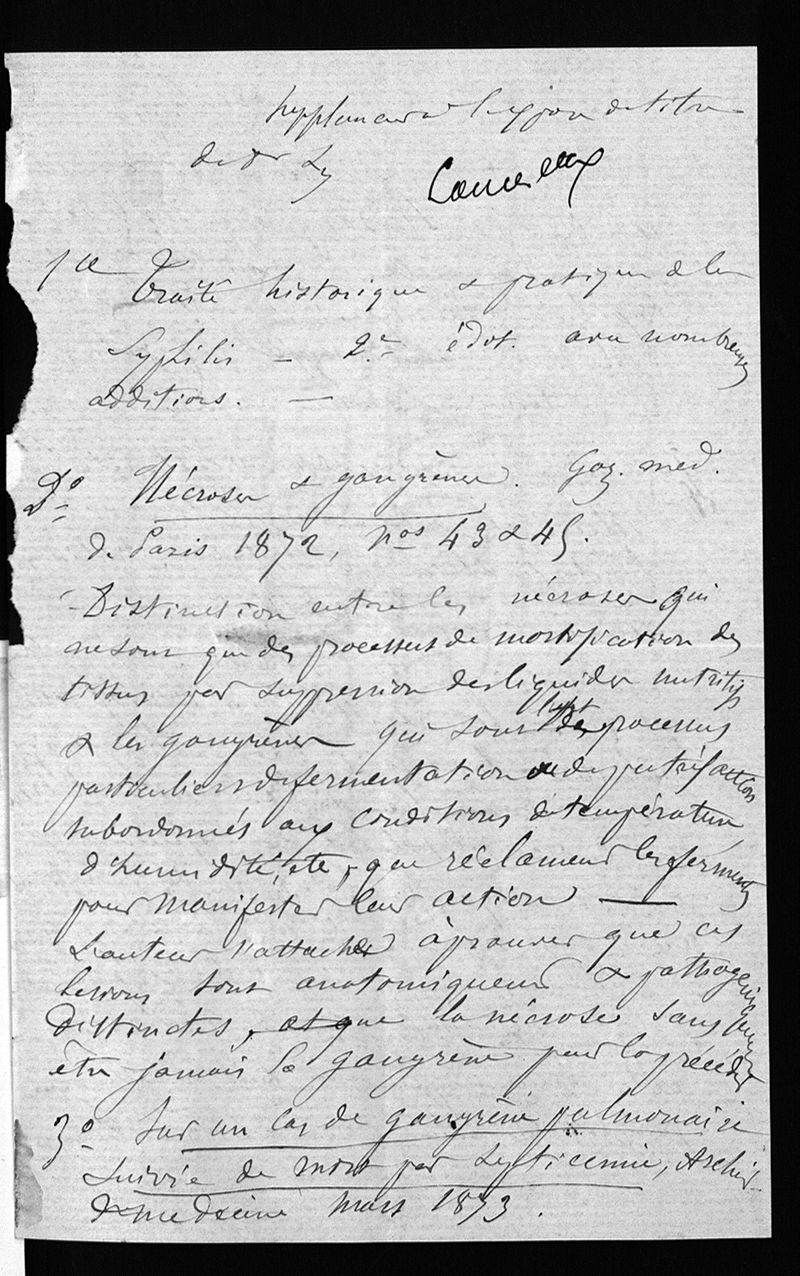 Supplément à l'exposé de titres
du Dr Lx
Lancereaux
1er Traité historique & pratique de la
Syphilis — 2e édit. avec nombreuses
additions. —
2o Nécroses & gangrènes. Gaz. med.
de Paris 1872, nos 43 & 45.
Distinction entre les nécroses qui
ne sont que des processus de mortification des
tissus par suppression des liquides nutritifs
& les gangrènes qui sont des processus
particuliers de fermentation de putréfaction
subordonnés aux conditions de température
d'humidité, etc, que réclament les ferments
pour manifester leur action —
L'auteur s'attache à prouver que ces
lésions sont anatomiquement & pathogéniquement
distinctes, et que la nécrose sans
être jamais la gangrène peut la précéder
3o Sur un cas de gangrène pulmonaire
suivie de mort par septicemie, Archiv.
de medecine mars 1873.